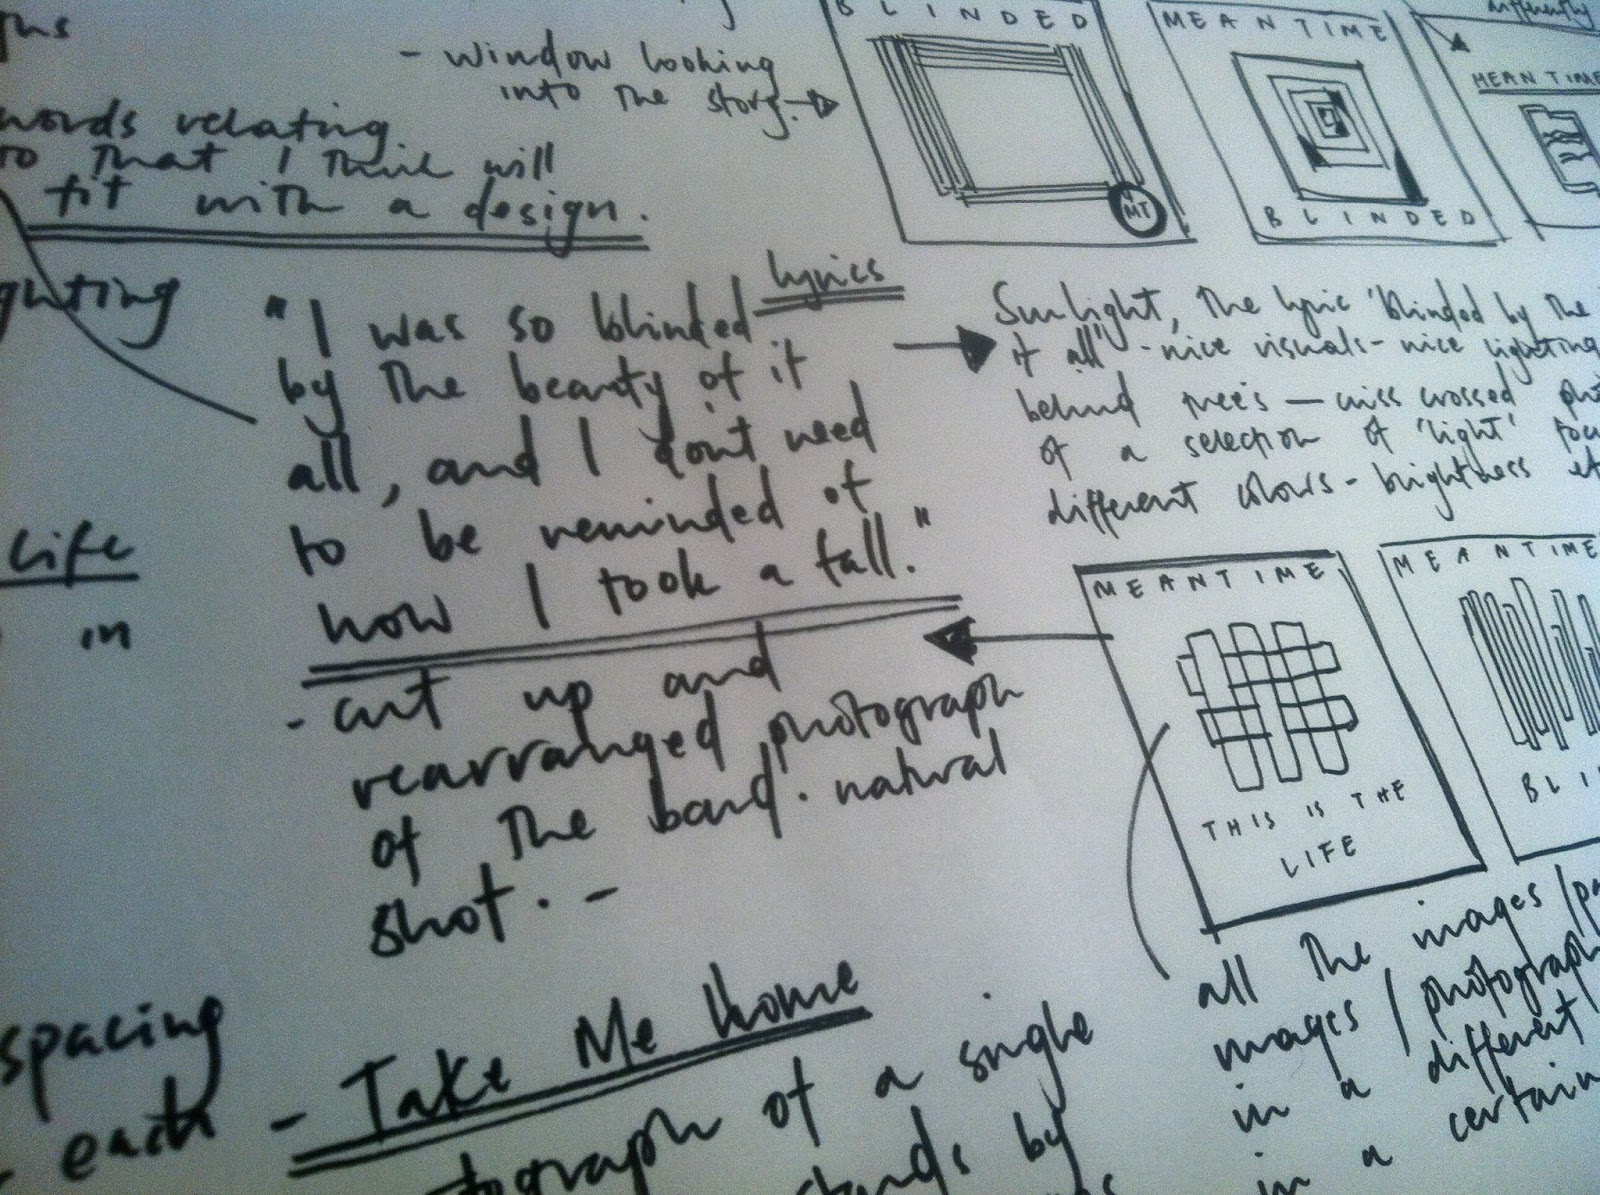 words relating
to that I think will
fit with a design.
- window looking
into the story.
BLINDED
MT
MEANTIME
BLINDED
differently
MEANTIME
lyrics
"I was so blinded
by the beauty of it
all, and I don't need
to be reminded of
how I took a fall."
Sunlight, the lyric 'blinded by the
it all' - nice visuals - nice lighting
behind trees - criss crossed
of a selection of 'light'
different colours - brightness
Life
in
- cut up and
rearranged photograph
of the band. natural
shot. -
MEANTIME
THIS IS THE
LIFE
MEANTIME
all the images /
images / photograph
in a different
in a certain
spacing
each
- Take Me Home
of a single
by